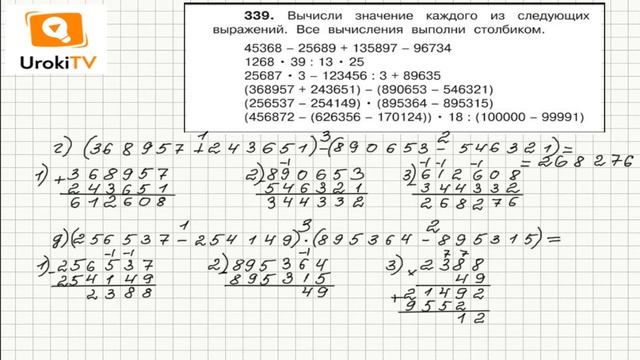 UrokiTV
339. Вычисли значение каждого из следующих
выражений. Все вычисления выполни столбиком.
45368 – 25689 + 135897 – 96734
1268 · 39 : 13 · 25
25687 · 3 – 123456 : 3 + 89635
(368957 + 243651) – (890653 – 546321)
(256537 – 254149) · (895364 – 895315)
(456872 – (626356 – 170124)) · 18 : (100000 – 99991)
1 3 2
г) (368957+243651)-(890653-546321)=
=268276
1) +368957 2) -890653 3) -612608
243651 546321 344332
612608 344332 268276
1 3 2
д) (256537-254149)·(895364-895315)=
1) -256537 2) -895364 3) ×2388
254149 895315 49
2388 49 +21492
9552
12